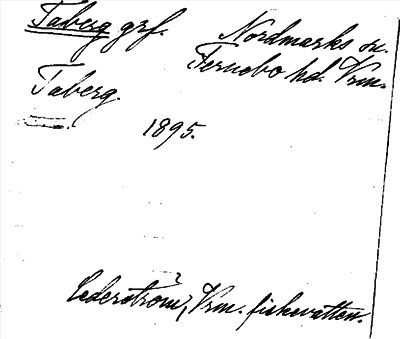 Taberg grf. Nordmarks sn.
Fernebo hd. Vrm.
Taberg.
1895.
Cederström, Vrm. fiskevatten.